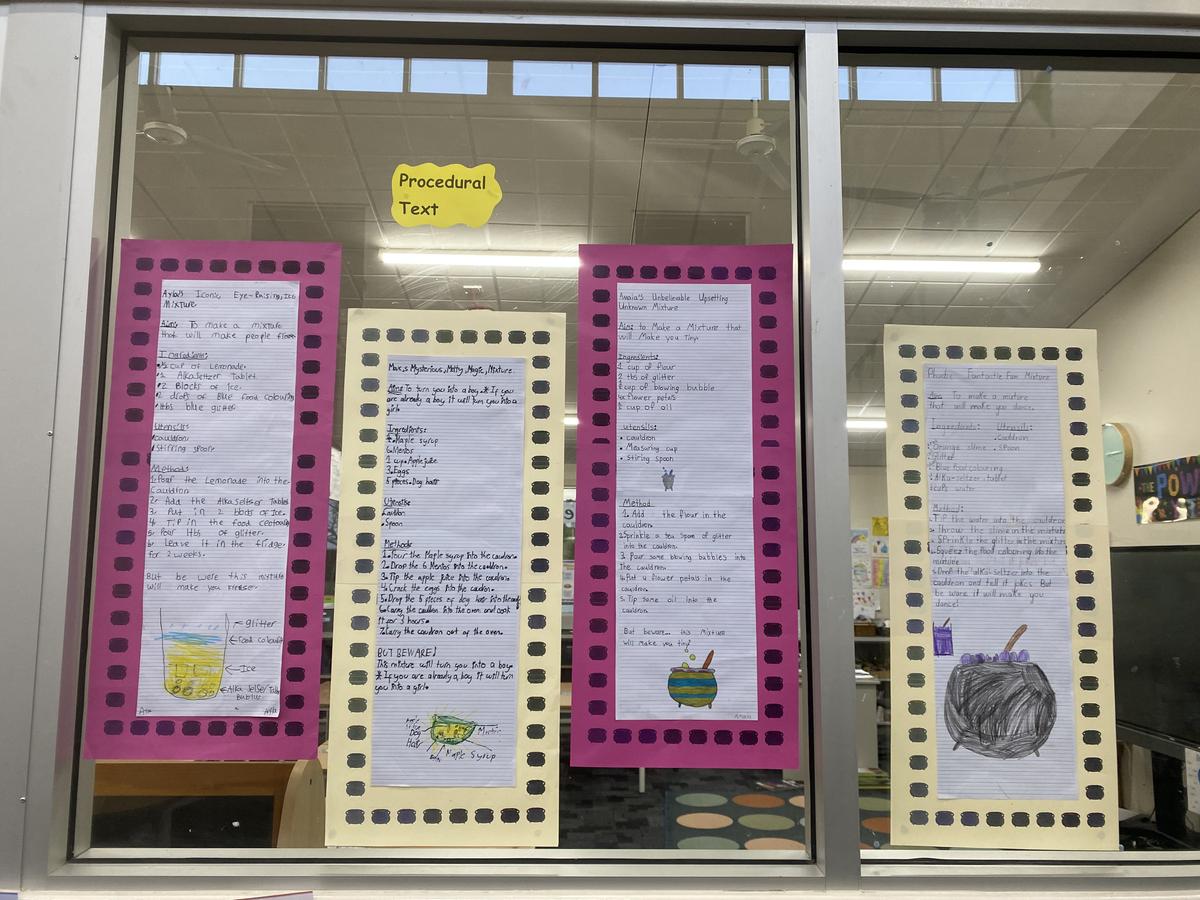 Procedural
Text
Ayla's Iconic, Eye-Raising, Ice
Mixture
Aim: To make a mixture
that will make people freeze
Ingredients:
cup of Lemonade.
Alkaseltzer Tablet
2 Blocks of Ice.
drops of Blue food colouring
blue glitter
Utensils:
cauldron
stirring spoon
Method:
1. Pour the Lemonade into the
Cauldron
2. Add the Alkaseltser Tablet
3. Put in 2 blocks of Ice.
4. Tip in the food
5. Pour 1tbs of glitter.
6. Leave it in the fridge
for 2 weeks.
But be were this mixture
will make you
glitter
food colouring
Ice
Max,s Mysterious, Magic, Mixture.
To turn you into a boy If you
are already a boy it will turn you into a
girl.
Ingredients:
Maple syrup
6 Mentos
1 cup Apple juice
3 Eggs
5 pieces Dog hair
Cauldron
Spoon
Method:
1. Pour the Maple syrup into the cauldron.
2. Drop the 6 Mentos into the cauldron.
3. Tip the apple juice into the cauldron.
4. Crack the eggs into the cauldron.
5. Drop the 5 pieces of dog hair into the
6. Carry the cauldron into the oven and cook
it for 3 hours.
7. Carry the cauldron out of the oven.
BUT BEWARE!
This mixture will turn you into a boy
If you are already a boy it will turn
you into a girl.
Dog
Hair
Maple Syrup
Amaia's Unbelievable Upsetting
Unknown Mixture
Aim: to Make a Mixture that
will Make you Tiny
Ingredients:
1 cup of flour
2 tbs of glitter
cup of blowing bubble
flower petals
cup of oil
utensils:
• cauldron
• Measuring cup
• Stiring spoon
Method
1. Add the flour in the
cauldron.
2. Sprinkle a tea spoon of glitter
into the cauldron.
3. Pour some blowing bubbles into
The cauldron.
4. Put a flower petals in the
cauldron.
5. Tip some oil into the
cauldron.
But beware... this Mixture
will make you tiny!
Phoebe Fantastic Fun Mixture
Aim: To make a mixture
that will make you dance.
Ingredients: Utensils:
Cauldron
Orange slime . spoon
Glitter
Blue food colouring
Alka-seltzer tablet
cups water
Method:
Tip the water into the cauldron
Throw the slime in the mixture
Sprinkle the glitter in the mixture
Squeez the food colouring in the
mixture
Drop the alka-seltzer into the
cauldron and tell it jokes. But
be ware it will make you
dance!
THE POW